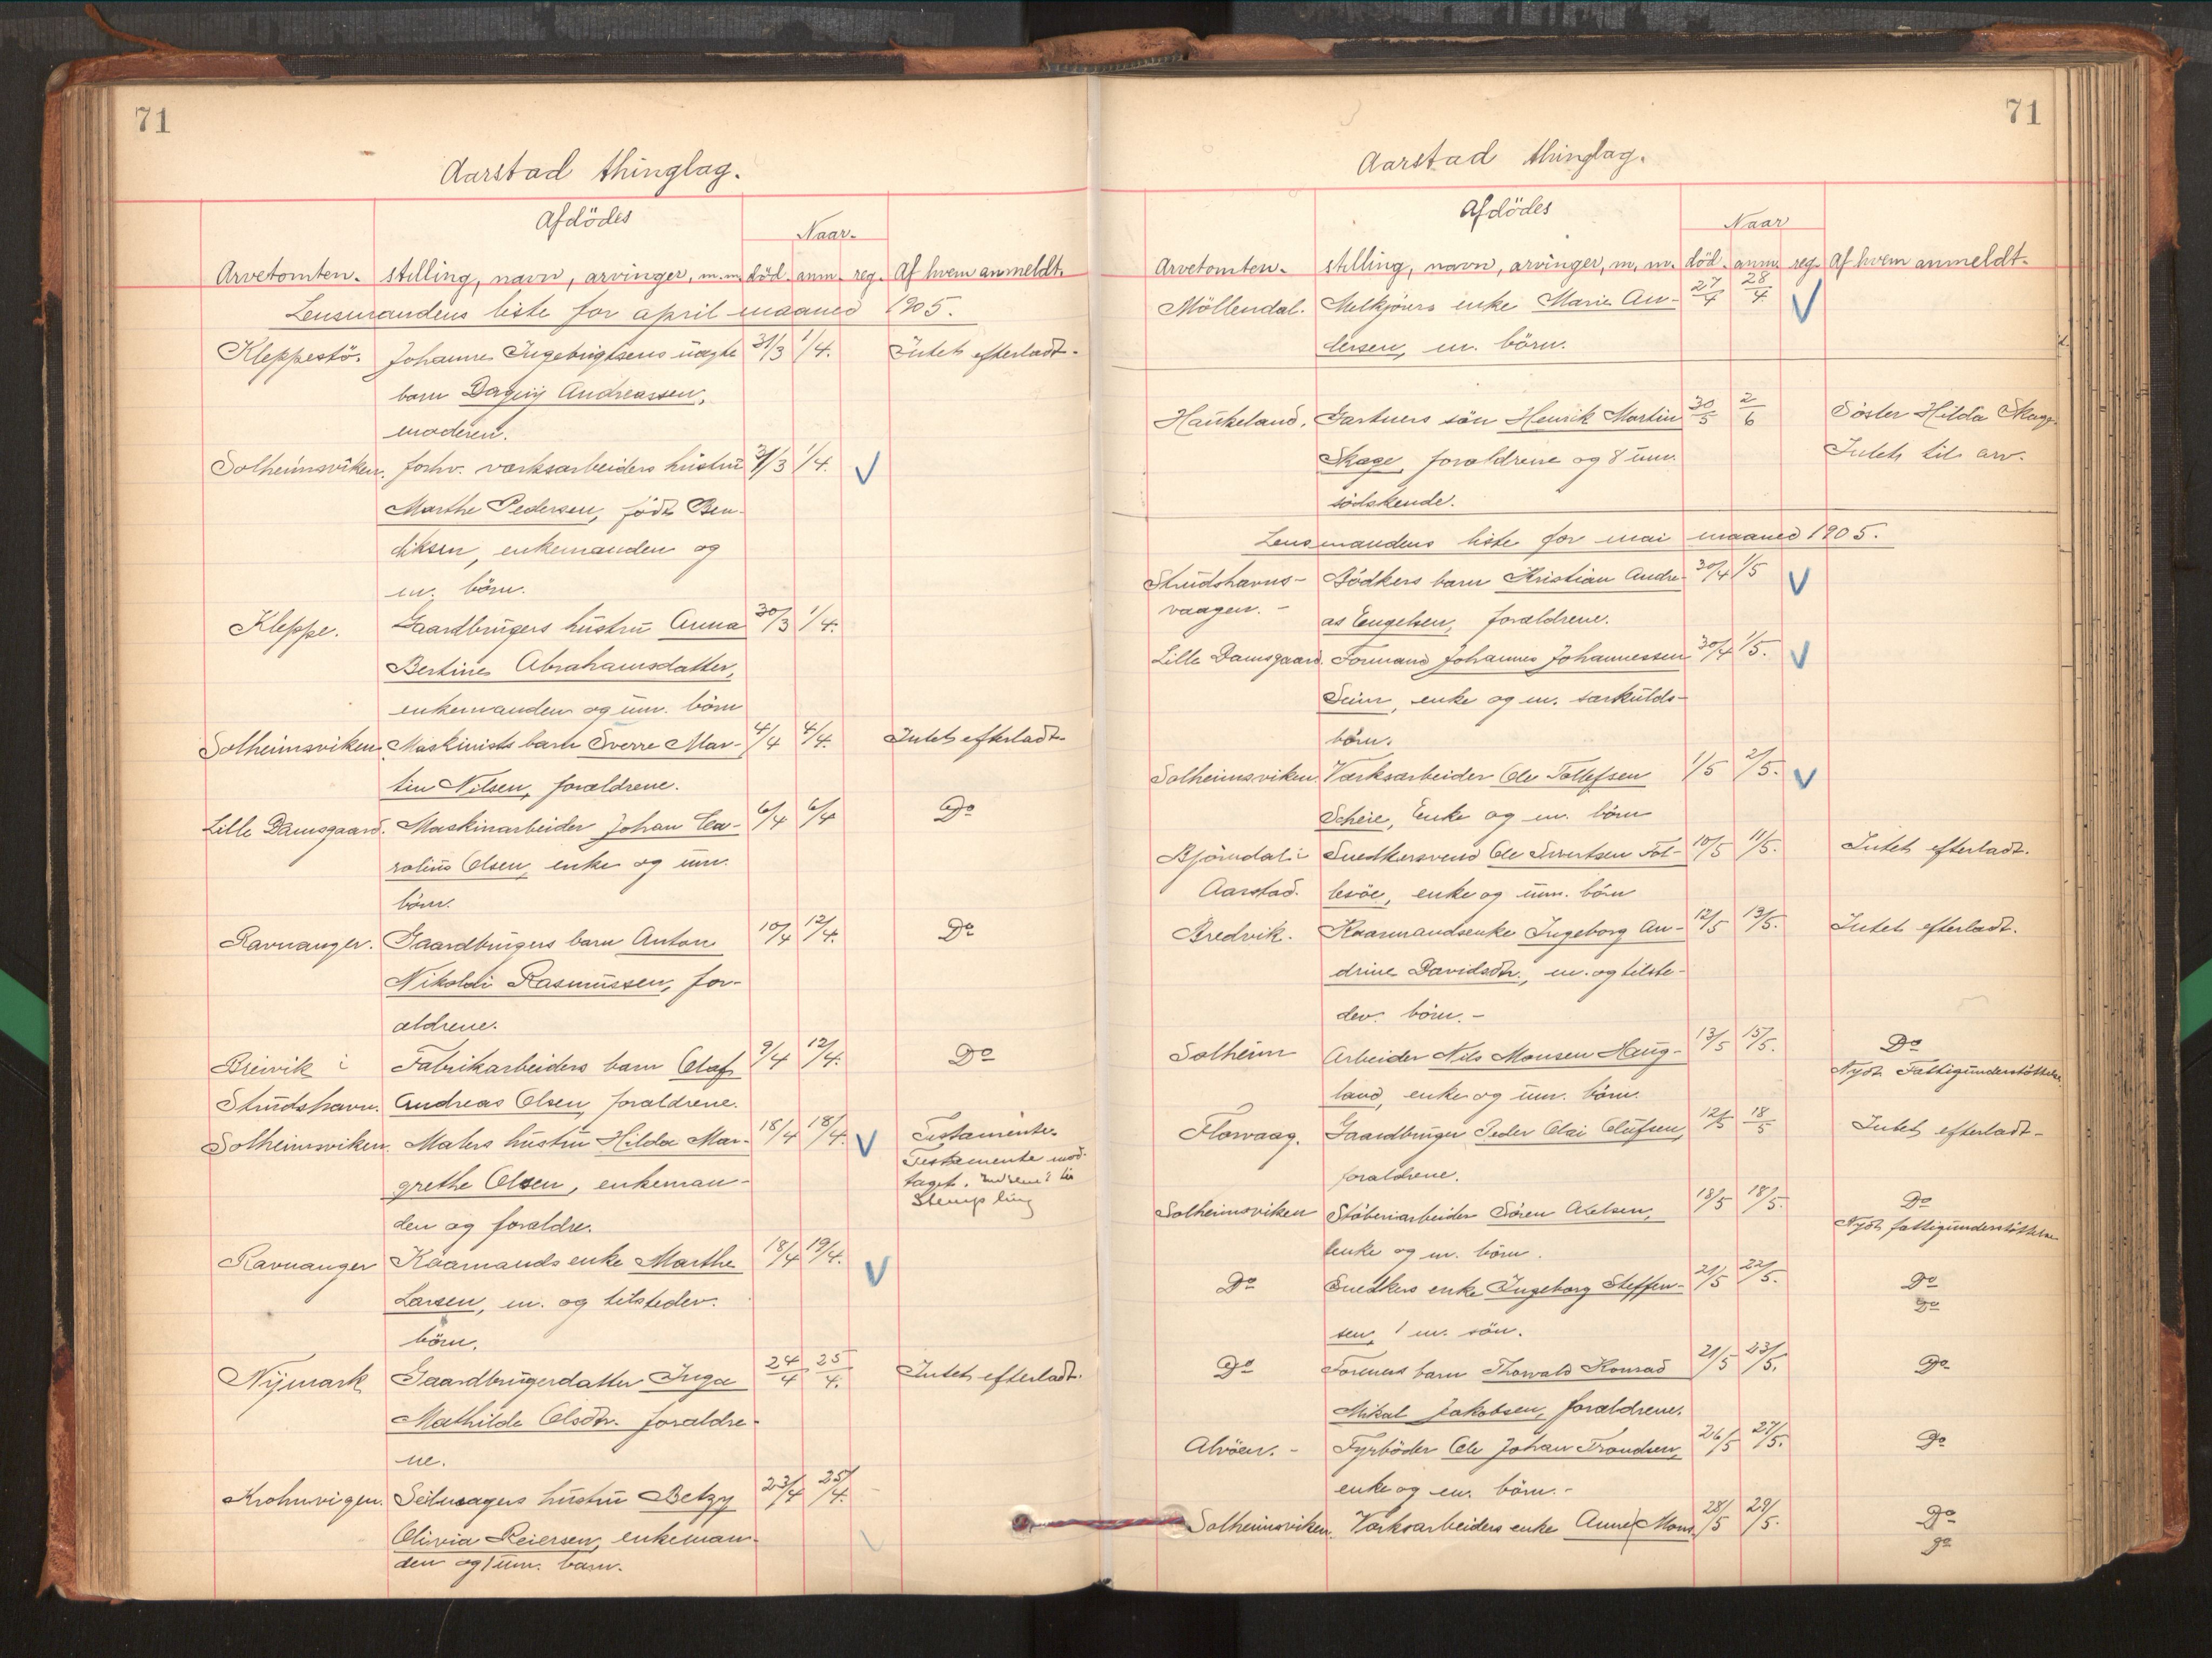 71
Aarstad thinglag.
Afdödes
Naar.
Arvetomten. stilling, navn, arvinger, m. m. död. anm. reg. Af hvem anmeldt.
Lensmandens liste for april maaned 1905.
Kleppestö. Johanne Ingebrigtsens uægte 31/3 1/4. Intet efterladt.
barn Dagny Andreassen,
moderen.
Solheimsviken. forhv. værksarbeiders hustru 31/3 1/4. V
Marthe Pedersen, födt Ben-
diksen, enkemanden og
m. börn.
Kleppe. Gaardbrugers hustru Anna 30/3 1/4.
Bertine Abrahamsdatter,
enkemanden og um. börn
Solheimsviken Maskinists barn Sverre Mar- 4/4 4/4. Intet efterladt.
tin Nilsen, forældrene.
Lille Damsgaard. Maskinarbeider Johan Ca- 6/4 6/4 Do
rolius Olsen, enke og um.
börn.
Ravnanger. Gaardbrugers barn Anton 10/4 12/4. Do
Nikolai Rasmussen, for-
ældrene.
Breivik i Fabrikarbeiders barn Olaf 9/4 12/4. Do
Strudshavn. Andreas Olsen, forældrene.
Solheimsviken. Malers hustru Hilda Mar- 18/4 18/4. V Testamente.
Testamente mod-
grethe Olsen, enkeman-
taget. til
Stempling
den og forældre.
Ravnanger Kaarmands enke Marthe 18/4 19/4. V
Larsen, m. og tilstedev.
börn.
Nymark Gaardbrugerdatter Inga 24/4 25/4. Intet efterladt.
Mathilde Olsdtr. forældre-
ne.
Krohnvigen. Seilmagers hustru Betzy 23/4 25/4.
Olivia Reiersen, enkeman-
den og 1 um. barn.
71
Aarstad thinglag.
Afdödes
Naar
Arvetomten. stilling, navn, arvinger, m. m. död. anm. reg. Af hvem anmeldt.
Möllendal. Melkjörers enke Marie An- 27/4 28/4 V
dersen, m. börn.
Haukeland. Gartners sön Henrik Martin 30/5 2/6 Söster Hilda Skage
Skage, forældrene og 8 um. Intet til arv.
södskende.
Lensmandens liste for mai maaned 1905.
Strudshavns- Bödkers barn Kristian Andre- 30/4 1/5 V
vaagen. - as Engelsen, forældrene.
Lille Damsgaard. Formand Johannes Johannessen 30/4 1/5. V
Seim, enke og m. særkulds-
börn.
Solheimsviken Værksarbeider Ole Tollefsen 1/5 2/5. V
Scheie, Enke og m. börn
Björndal i Snedkersvend Ole Sivertsen Tol- 10/5 11/5. Intet efterladt.
Aarstad. lesöe, enke og um. börn
Bredvik. Kaarmandsenke Ingeborg An- 12/5 13/5. Intet efterladt.
drine Davidsdtr., m. og tilste-
dev. börn. -
Solheim Arbeider Nils Monsen Haug- 13/5 15/5. Do
Nydt Fattigunderstöttelse.
land, enke og um. börn.
Florvaag. Gaardbruger Peder Olai Olufsen, 12/5 18/5 Intet efterladt.
forældrene.
Solheimsviken Stöberiarbeider Sören Axelsen, 18/5 18/5. Do
Nydt fattigunderstöttelse
enke og m. börn.
Do Snedkers enke Ingeborg Steffen- 21/5 22/5. Do
Do
sen, 1 m. sön.
Do Formers barn Thorvald Konrad 21/5 23/5. Do
Mikal Jakobsen, forældrene.
Alvöen. - Fyrböder Ole Johan Trondsen, 26/5 27/5. Do
enke og m. börn. -
Solheimsviken. Værksarbeiders enke Anne Mons. 28/5 29/5. Do
Do